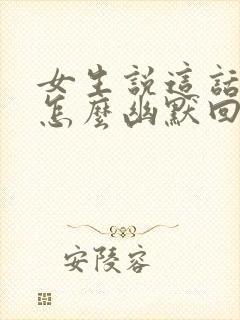 女生説這話
怎麼幽默回
安陵容